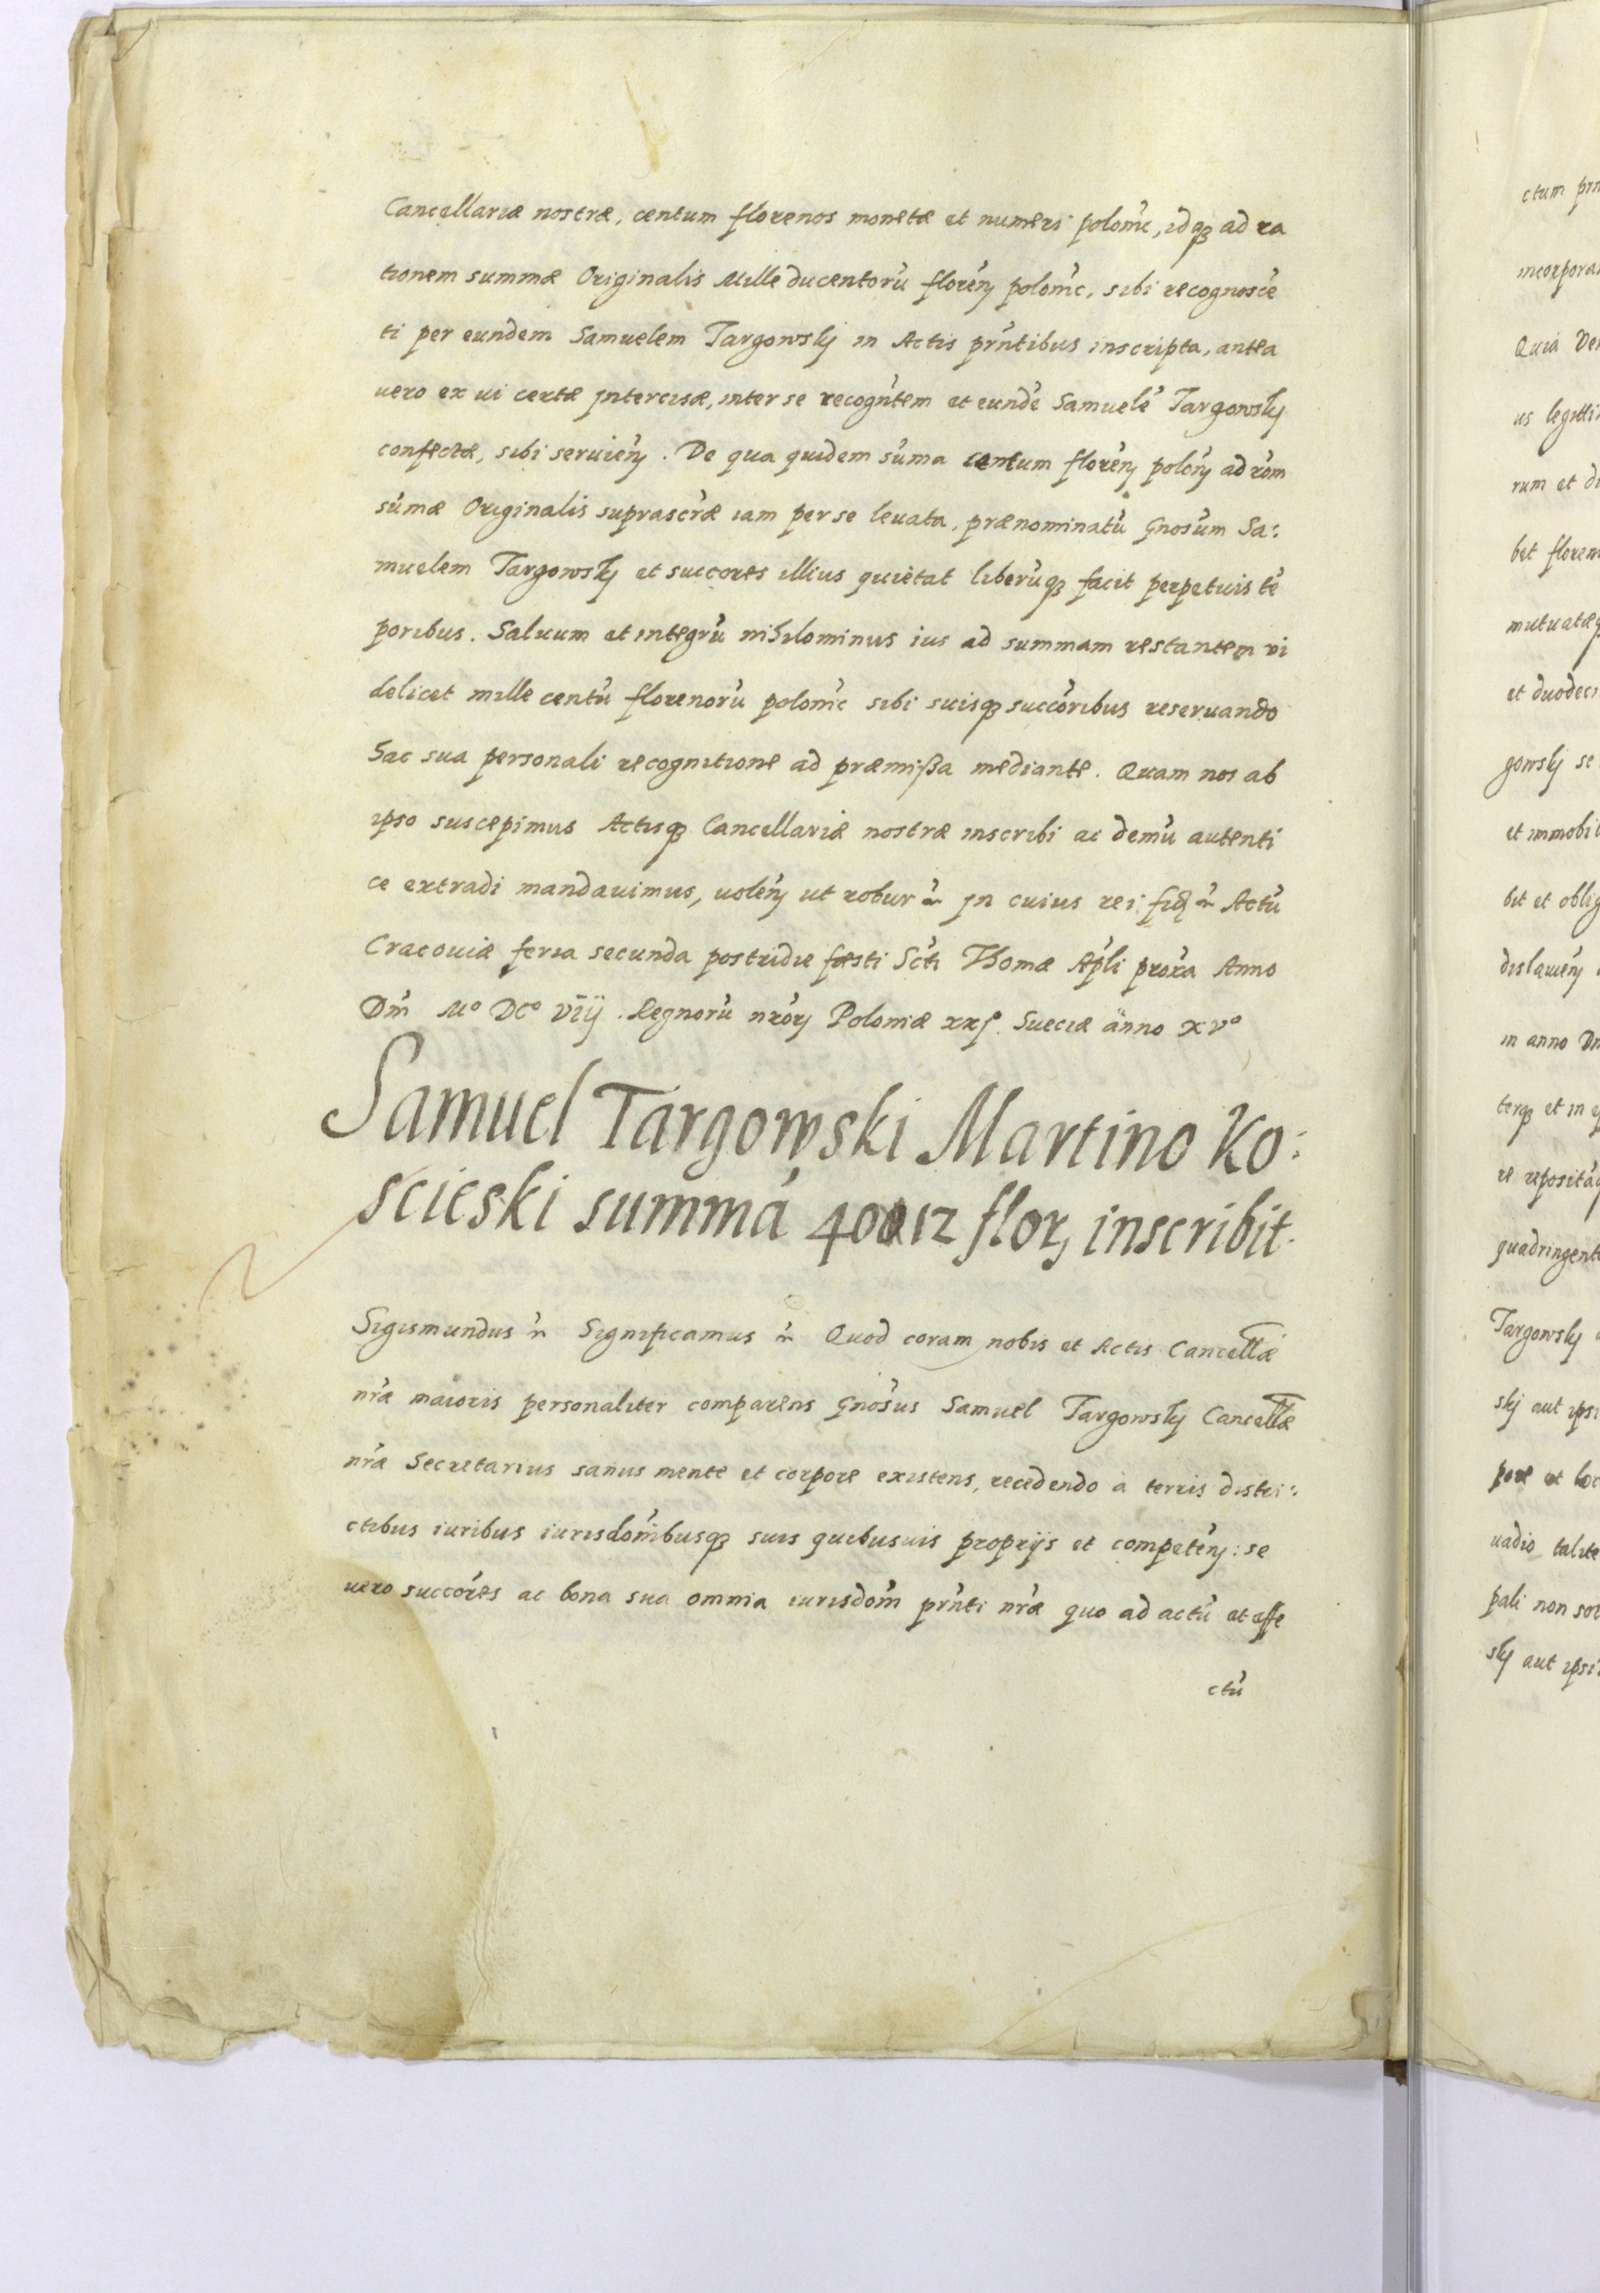 Cancellariæ nostræ, centum florenos monetæ et numeri polonić, idq3 ad ra
tionem summæ Originalis Mille ducentorú floreń polonić, sibi recognoscé
ti per eundem Samuelem Targowskÿ in Actis prńtibus inscripta, antea
uero ex ui certæ jntercisæ, inter se recognt́em et eundé Samuelé Targowskÿ
confectæ, sibi servień. De qua quidem súma centum floreń poloń ad rőm
súmæ Originalis suprascrǽ iam per se leuata, prænominatú Gnosúm Sa:
muelem Targowskÿ et succores illius quietat liberúq3 facit perpetuis té
poribus. Saluum et integrú nihilominus ius ad summam restantem vi
delicet mille centú florenorú polonić sibi suisq3 succóribus reseruando
hac sua personali recognitione ad præmißa mediante. Quam nos ab
ipso suscepimus Actisq3 Cancellariæ nostræ inscribi ac demú autenti
ce extradi mandauimus, uoleń ut robur jn cuius rei fid Actú
Cracouiæ feria secunda postridie fæsti Scti Thomæ Apli proxa Anno
Dni Mo DCo Viij. Regnorú nrór Poloniæ xxjo. Sueciæ anno xvo
Samuel Targowski Martino Ko:
scieski summá 40012 flor inscribit.
Sigismundus Significamus Quod coram nobis et Actis Cancellæ
nrǽ maioris personaliter comparens Gnosús Samuel Targowskÿ Cancellæ
nrǽ Secretarius sanus mente et corpore existens, recedendo a terris distri:
ctibus iuribus iurisdoníbusq3 suis quibusuis proprijs et competeń: se
uero succóres ac bona sua omnia iurisdoní prńti nrǽ quo ad actú et effe
ctú
ctum
incorpora
Quia
us legitti
rum et
bet floren
mutuatæq
et duodeci
gowskÿ se
et immobi
bit et oblig
dislaueń
in anno
terq3 et in
re repositá
quadringent
Targowskÿ
skÿ aut ipsi
pore et loc
uadio talite
pali non sol
skÿ aut ipsi